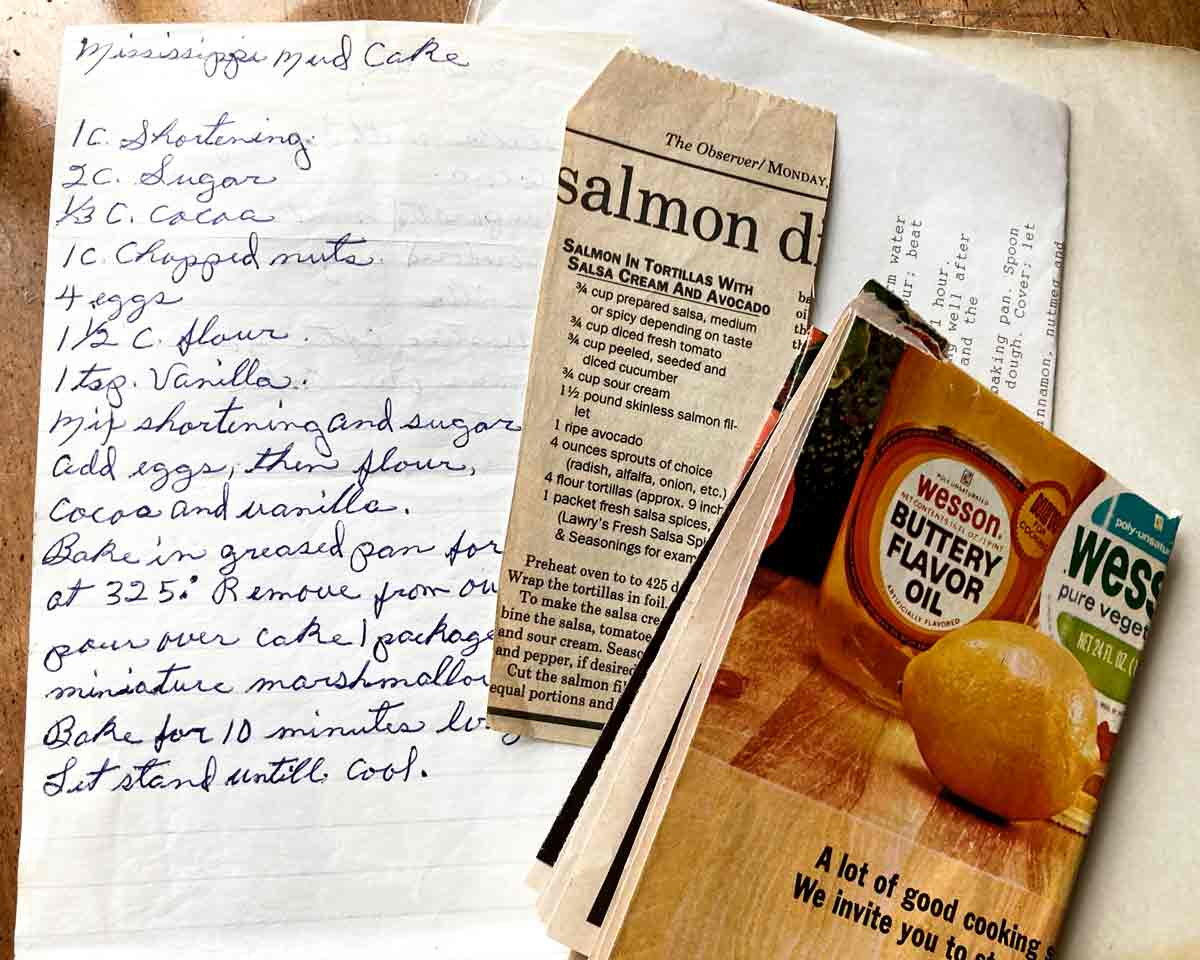 Mississippi Mud Cake
1c. Shortening.
2c. Sugar
1/3 C. Cocoa
1c. Chopped nuts.
4 eggs
1 1/2 C. flour.
1 tsp. Vanilla.
Mix shortening and sugar
add eggs, then flour,
Cocoa and vanilla.
Bake in greased pan for
at 325° Remove from
pour over cake 1 package
miniature
Bake for 10 minutes
Let stand untill cool.
The Observer/ MONDAY,
salmon
SALMON IN TORTILLAS WITH
SALSA CREAM AND AVOCADO
¾ cup prepared salsa, medium
or spicy depending on taste
¾ cup diced fresh tomato
¾ cup peeled, seeded and
diced cucumber
¾ cup sour cream
1½ pound skinless salmon fil-
let
1 ripe avocado
4 ounces sprouts of choice
(radish, alfalfa, onion, etc.)
4 flour tortillas (approx. 9 inch
1 packet fresh salsa spices,
(Lawry's Fresh Salsa
& Seasonings for
Preheat oven to to 425
Wrap the tortillas in foil.
To make the salsa
bine the salsa,
and sour cream.
and pepper, if desired
Cut the salmon
equal portions and
water
beat
1 hour.
well after
and the
baking pan. Spoon
dough. Cover; let
nutmeg and
POLY-UNSATURATED
wesson
NET CONTENTS 16 FL. OZ./1 PINT
BUTTERY
FLAVOR
OIL
ARTIFICIALLY FLAVORED
FOR
COOKING
pure
NET 24 FL. OZ.
A lot of good cooking
We invite you to